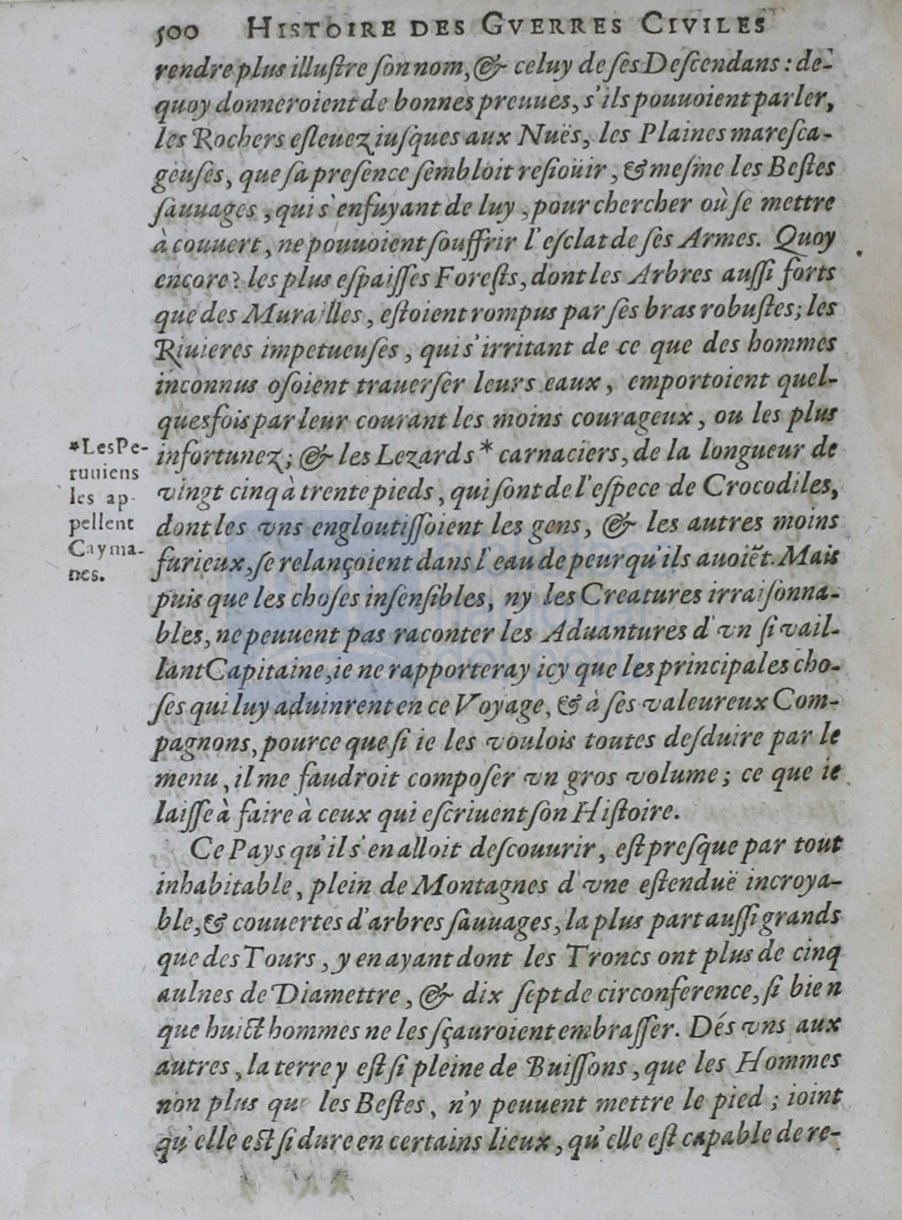 500 HISTOIRE DES GVERRES CIVILES
rendre plus illuſtre ſon nom, & celuy de ſes Deſcendans : de-
quoy donneroient de bonnes preuues, s'ils pouuoient parler,
les Rochers eſleuez iuſques aux Nuës, les Plaines mareſca-
geuſes, que ſa preſence ſembloit reſioüir, & meſme les Beſtes
ſauuages, qui s'enfuyant de luy, pour chercher où ſe mettre
à couuert, ne pouuoient ſouffrir l'eſclat de ſes Armes. Quoy
encore? les plus eſpaiſſes Foreſts, dont les Arbres auſſi forts
que des Murailles, eſtoient rompus par ſes bras robuſtes; les
Riuieres impetueuſes, qui s'irritant de ce que des hommes
inconnus oſoient trauerſer leurs eaux, emportoient quel-
quesfois par leur courant les moins courageux, ou les plus
infortunez; & les Lezards * carnaciers, de la longueur de
vingt cinq à trente pieds, qui ſont de l'eſpece de Crocodiles,
dont les vns engloutiſſoient les gens, & les autres moins
furieux, ſe relançoient dans l'eau de peur qu'ils auoiẽt. Mais
puis que les choſes inſenſibles, ny les Creatures irraiſonna-
bles, ne peuuent pas raconter les Aduantures d'vn ſi vail-
lant Capitaine, ie ne rapporteray icy que les principales cho-
ſes qui luy aduinrent en ce Voyage, & à ſes valeureux Com-
pagnons, pource que ſi ie les voulois toutes deſduire par le
menu, il me faudroit compoſer vn gros volume; ce que ie
laiſſe à faire à ceux qui eſcriuent ſon Hiſtoire.
Ce Pays qu'il s'en alloit deſcouurir, eſt preſque par tout
inhabitable, plein de Montagnes d'vne eſtenduë incroya-
ble, & couuertes d'arbres ſauuages, la plus part auſſi grands
que des Tours, y en ayant dont les Troncs ont plus de cinq
aulnes de Diamettre, & dix ſept de circonference, ſi bien
que huict hommes ne les ſçauroient embraſſer. Dés vns aux
autres, la terre y eſt ſi pleine de Buiſſons, que les Hommes
non plus que les Beſtes, n'y peuuent mettre le pied; ioint
qu'elle eſt ſi dure en certains lieux, qu'elle eſt capable de re-
*Les Pe-
ruuiens
les ap-
pellent
Cayma-
nes.